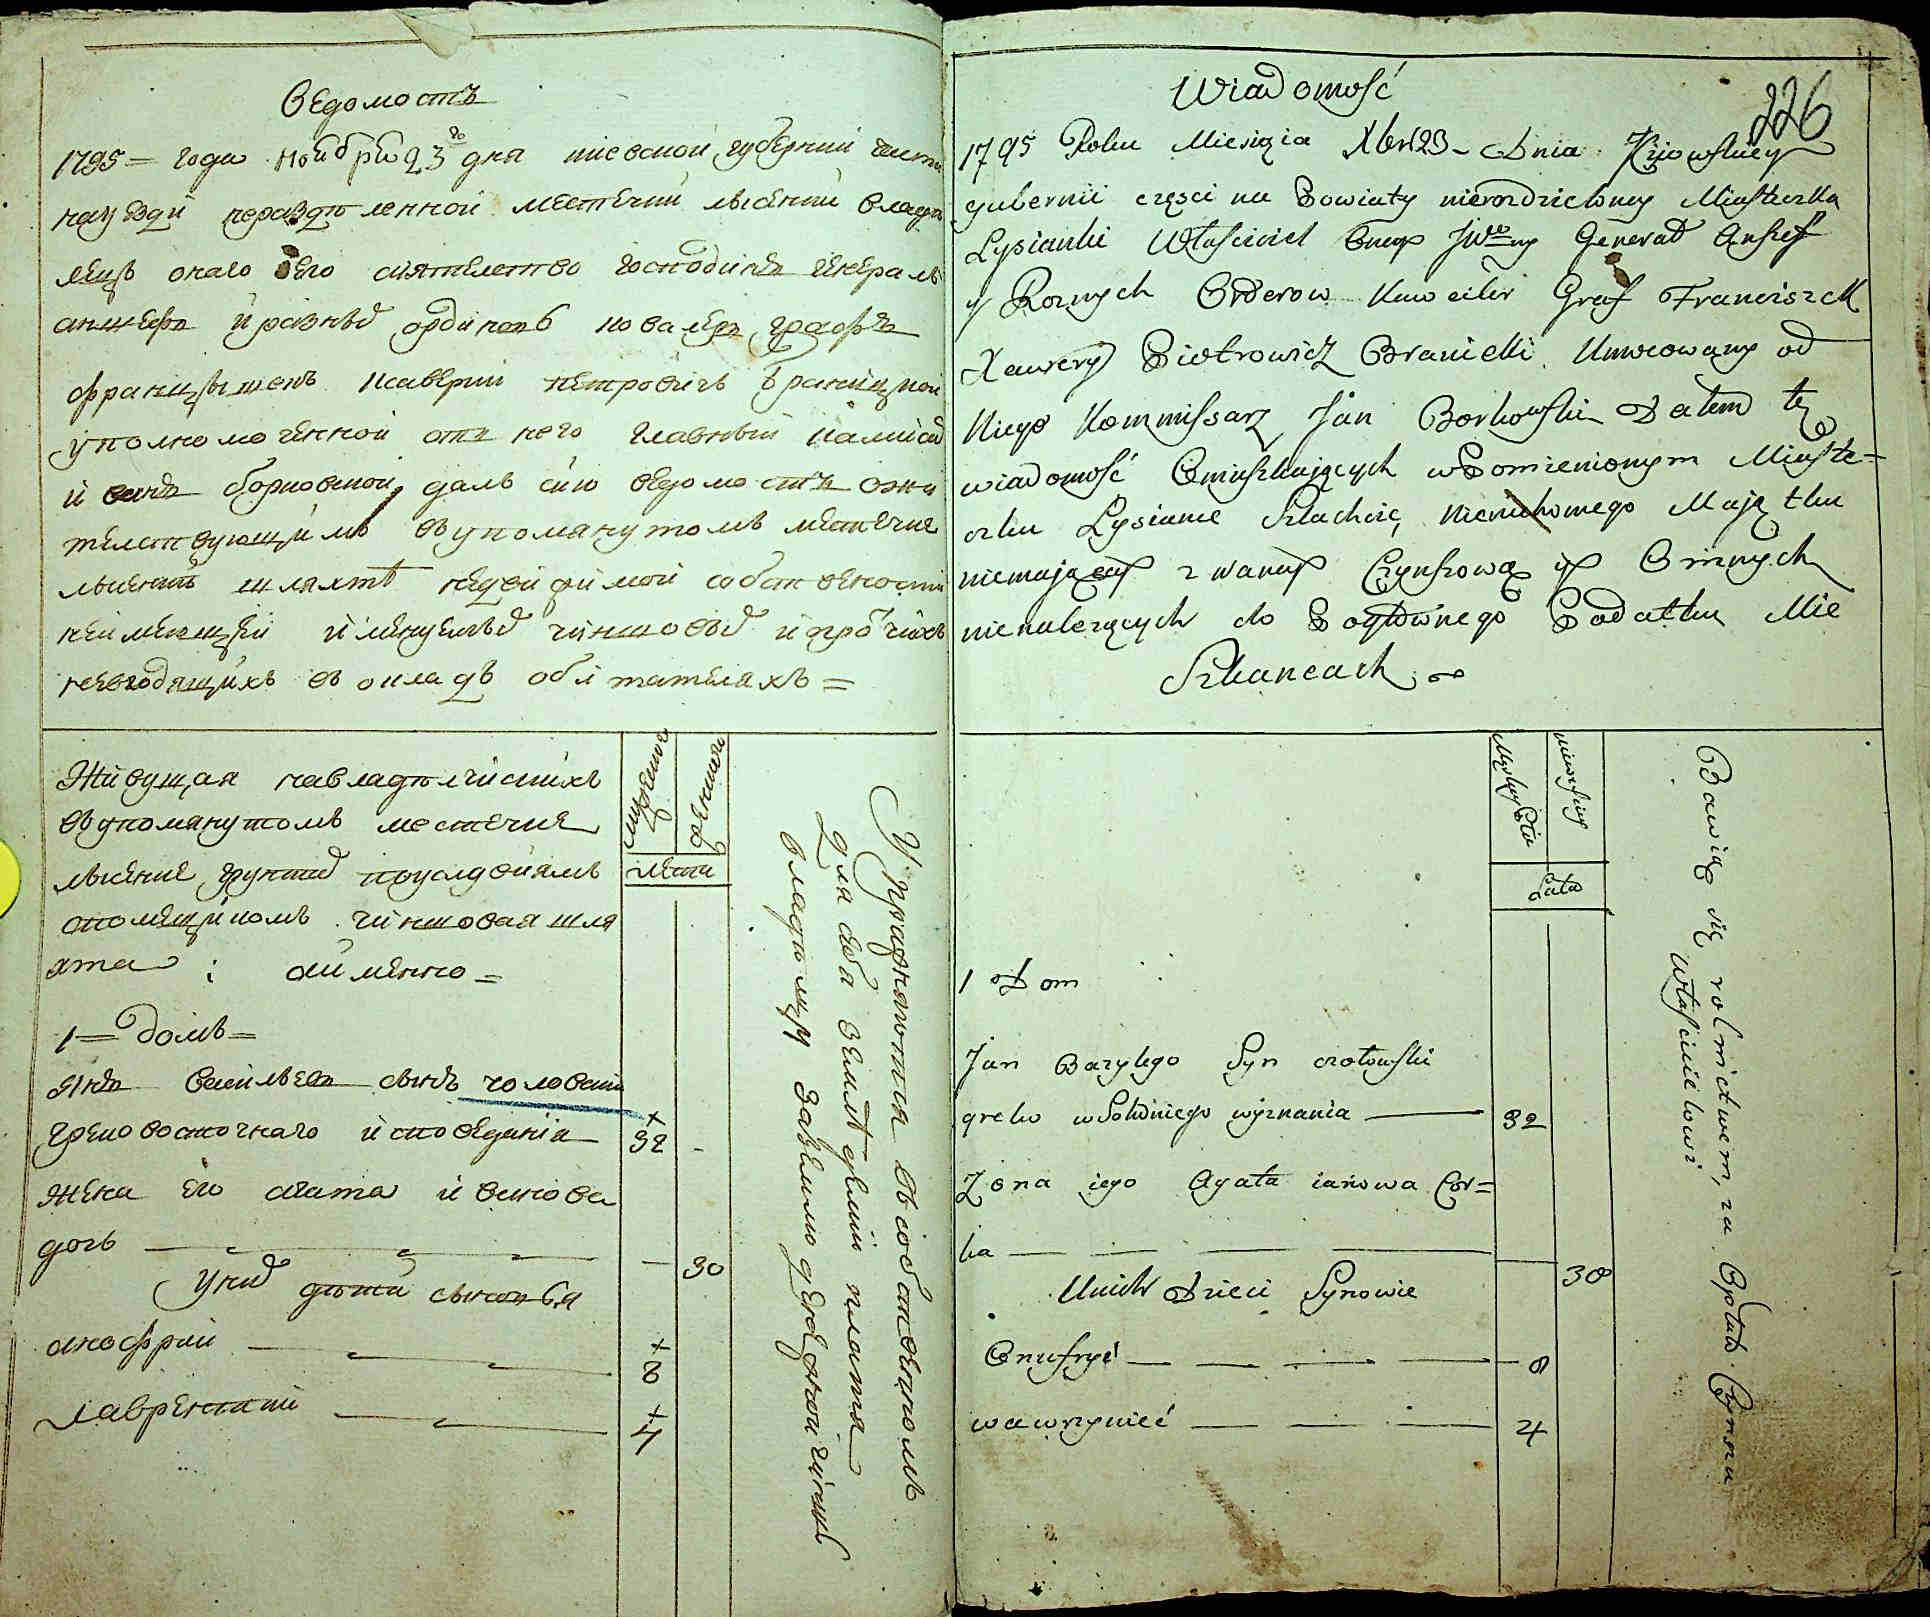 Ведомость
1795 = года ноября 23го дня киевской губернии части
науезди неразделенной местечки лысенки владе
лецъ онаго его сиятелство господинъ генералъ
аншефъ и разныхъ орденовъ кавалеръ графъ
францышекъ ксаверий петровичъ браницкой
уполномоченной отъ него главный камисар
борковской далъ сию ведомость ожи
телствующимъ въ упомянутомъ местечке
лысенке шляхте недвижимой собствености
неимеющей и менуемыхъ чиншовыхъ и протчихъ
невходящихъ въ окладъ обитателяхъ =
мужеска
женска
лета
Живущая навладелческихъ
въупомянутомъ местечке
лысенке грунтахъ поусловиямъ
спомещикомъ чиншовая шля
хта : аименно =
1 = домъ =
янъ васильевъ сынъ чоловски
грековосточнаго исповедания 32
жена его агата
дочь 30
Унихъ дети сыновья
анофрий 8
лаврентий 4
Упражняются въ собственномъ
для себя земледелии платя
владелцу заземлю денежной чиншъ
Wiadomość
226
1795 Roku Miesiąca Xbra 23 - Dnia Kijowskiey
gubernii częsci na Powiaty nierozdzieloney Miasteczka
Lysianki Własciciel Onego JWny Generał Anszef
y Roznych Orderow Kawaler Graf Franciszek
Xawery Piotrowicz Branicki Umocowany od
Niego Kommissarz Jan Borkowski Dałem tę
wiadomość Omieszkaiących wPomienionym Miaste=
czku Lysiance Szlachcie, Nieruchomego Maiątku
niemaiącey zwaney Czynszową y Oinnych
nienalezących do Pogłownego Podatku Mie
Szkancach
Męskiey Płci
niewieskiey
Lata
1 Dom
Jan Bazylego Syn czołowski
greko wSchodniego wyznania 32
Zona iego Agata ianowa Cor=
ka 30
Unich Dzieci Synowie
Onufryi 8
wawrzyniec 4
Bawią się rolnictwem, za Opłatą Czynszu
Włascicielowi